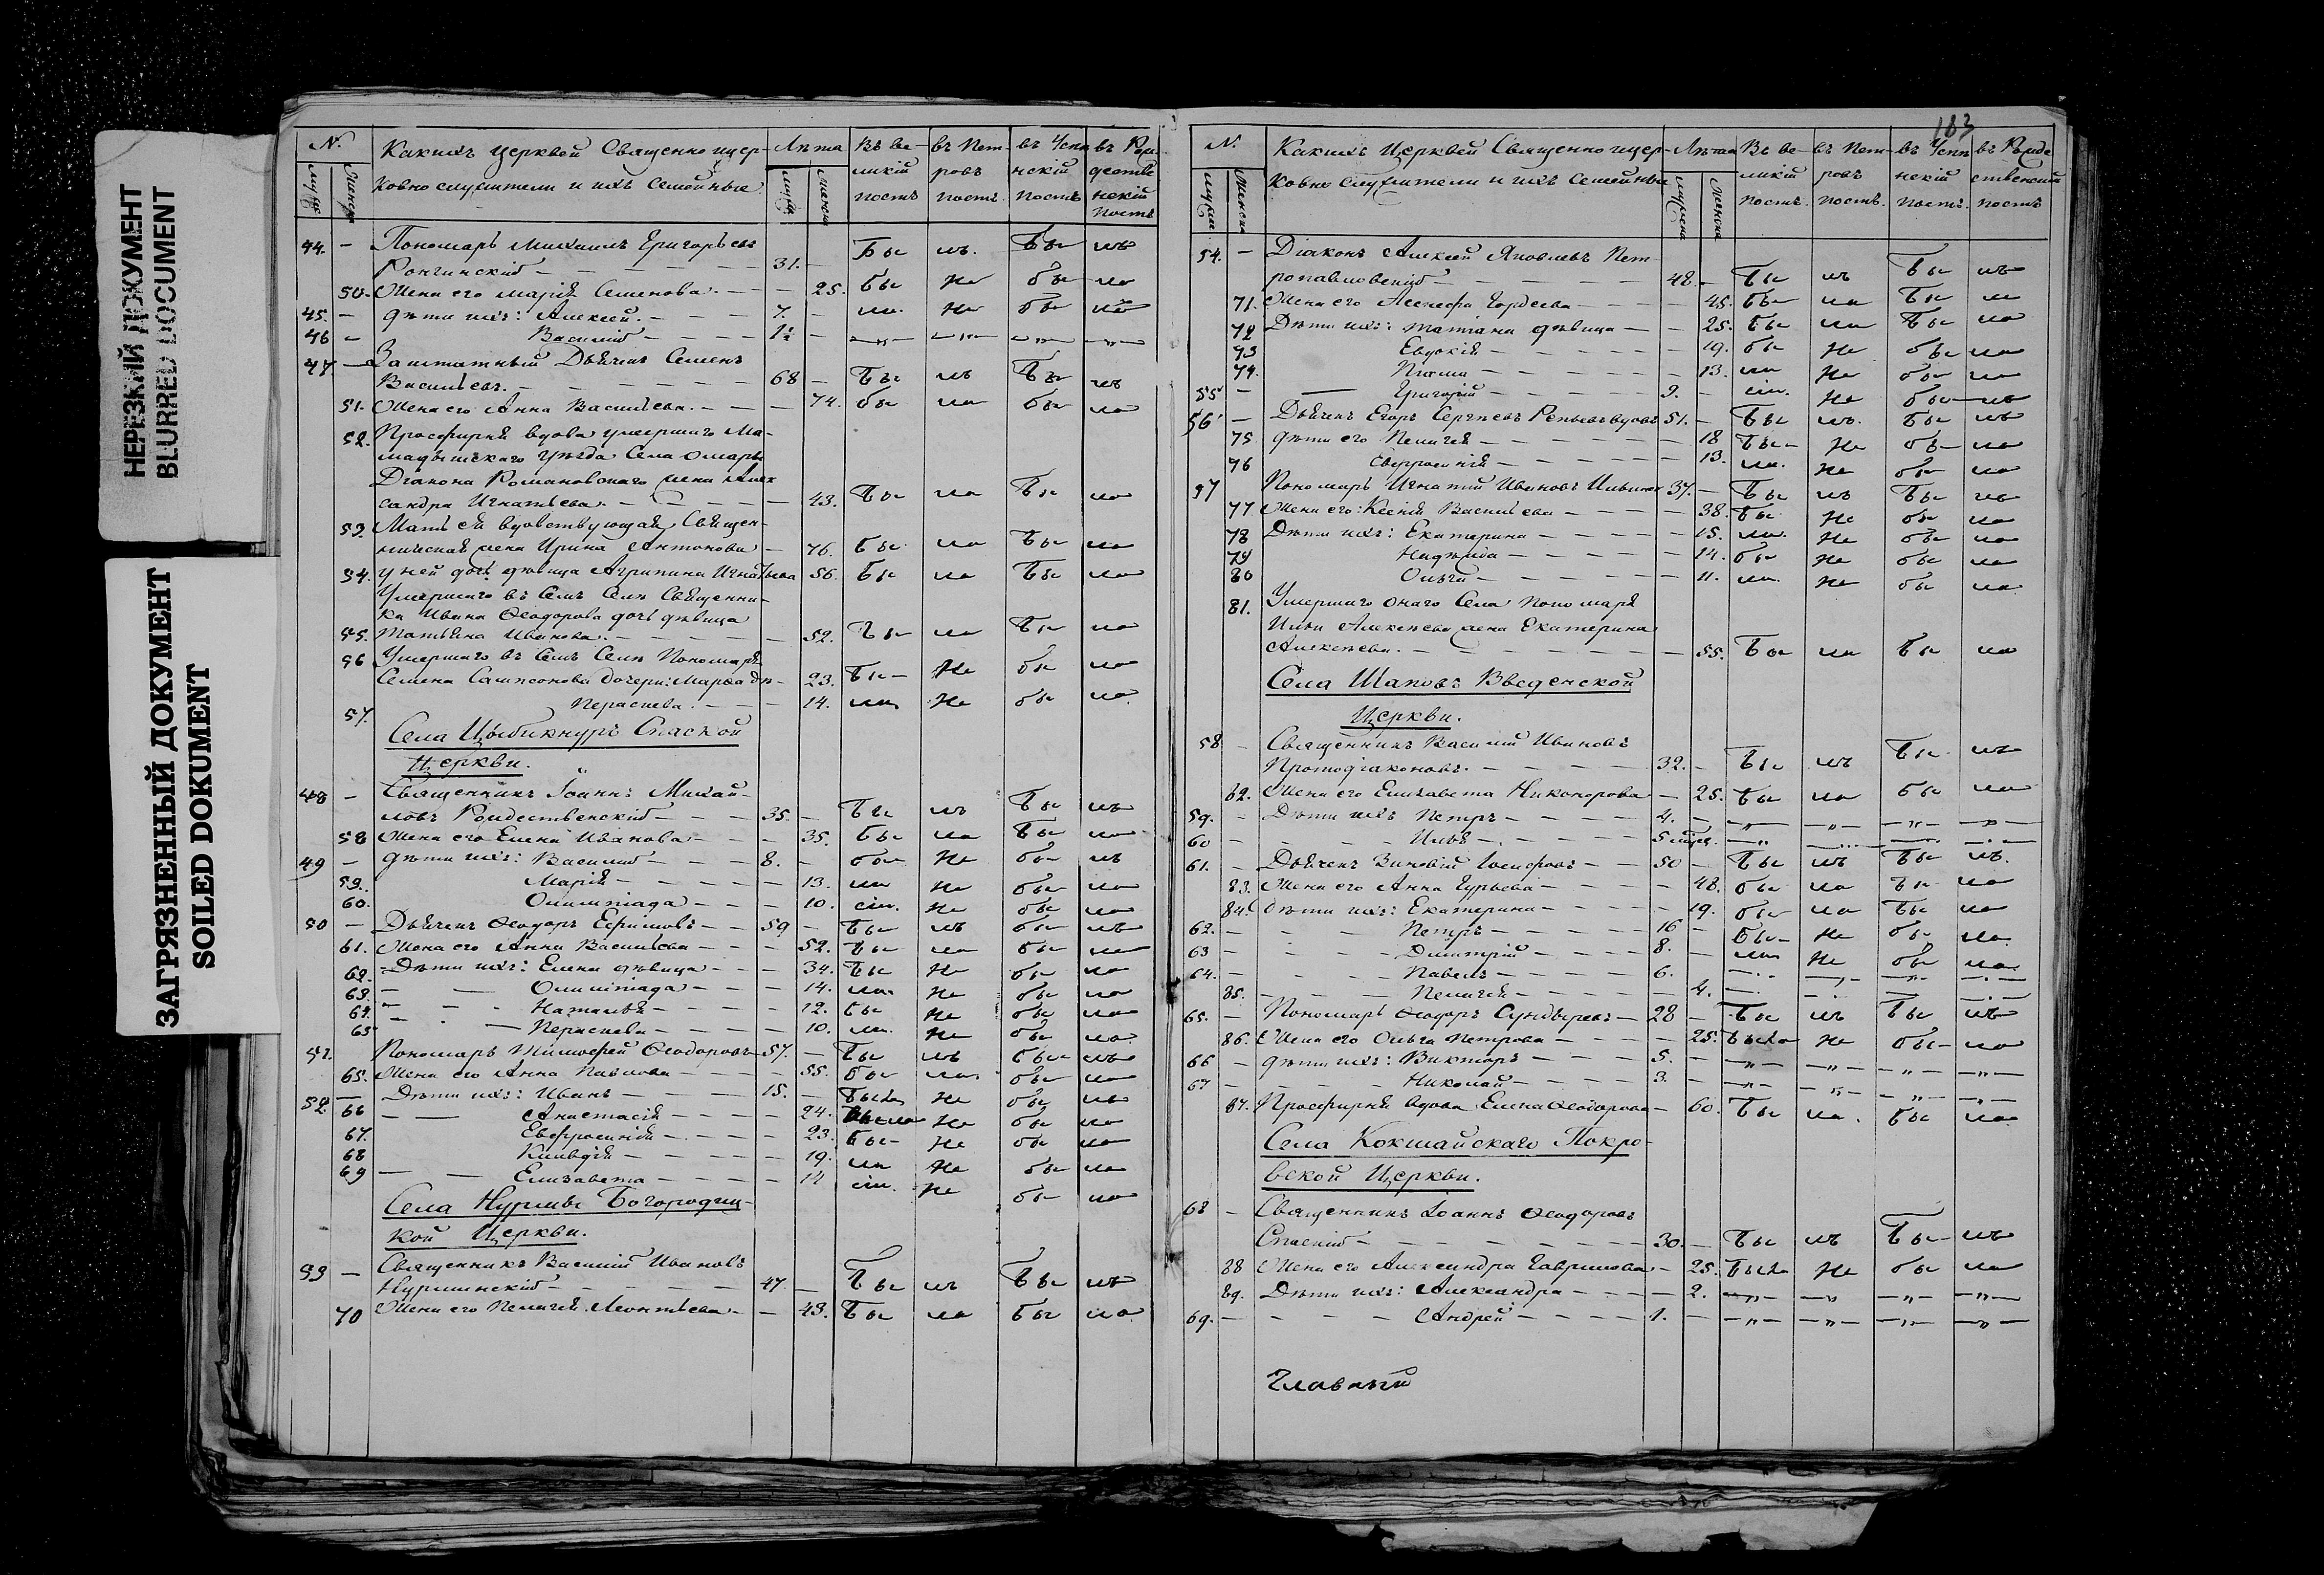 НЕРЕЗКИЙ ДОКУМЕНТ
BLURRED DOCUMENT
ЗАГРЯЗНЕННЫЙ ДОКУМЕНТ
SOILED DOKUMENT
№ Какихъ церквей Священно и цер- Лѣта Въ ве- въ Пет- въ Успе въ Рож-
ковно служители и ихъ семейные ликій ровъ нскій дестве
постъ постъ постъ нскій
постъ
44. — Пономарь Михаилъ Григорьевъ Бы лъ. Бы лъ
Ронгинскій — 31. —
50. Жена его Марія Семенова. — 25. бы ла не бы ла
45. — Дѣти ихъ: Алексей. — 7. —
46 — Василій — 1½ —
47. — Заштатный Дьячекъ Семенъ
Васильевъ. — 68 — Бы лъ Бы лъ
51. Жена его Анна Васильева. — 74. бы ла бы ла
52. Просфирня вдова умершаго Ма-
мадышскаго уѣзда Села Омары
Діакона Романовскаго жена Алек
сандра Игнатьева. — 43. Бы ла Бы ла
53. Мать ея вдовствующая Священ-
ническая жена Ирина Антонова — 76. Бы ла Бы ла
54. у ней дочь дѣвица Агрипина Игнатьева 56. Бы ла Бы ла
Умершаго въ семъ Селѣ Священни-
ка Ивана Ѳеодорова дочь дѣвица
55. Татьяна Иванова. — 52. Бы ла Бы ла
56 Умершаго въ семъ Селѣ Пономаря
Семена Сампсонова дочери: Марѳа дѣ- 23. Бы- не бы ла
57. Параскева. — 14. ла не бы ла
Села Цыбикнуръ Спаской
Церкви.
48 — Священникъ Іоаннъ Михай-
ловъ Рождественскій — 35. — Бы лъ Бы лъ
58 Жена его Елена Иванова — 35. Бы ла Бы ла
49 — Дѣти ихъ: Василій — 8. — бы не бы лъ
59. Марія — 13. ла не бы ла
60. Олимпіада — 10. не бы ла
50 — Дьячекъ Ѳеодоръ Ефимовъ — 59 — Бы лъ бы лъ
61. Жена его Анна Васильева — 52. Бы ла бы ла
62. Дѣти ихъ: Елена дѣвица — 34. Бы не бы ла
63. Олимпіада — 14. ла не бы ла
64. Наталья — 12. бы не бы ла
65 Параскева — 10. ла. не бы ла.
51. Пономарь Тимофей Ѳеодоровъ — 57. — Бы лъ бы лъ
65. Жена его Анна Павлова — 55. бы ла бы ла
52. — Дѣти ихъ: Иванъ — 15. — не бы лъ
66 Анастасія — 24. Была не бы ла
67. Евфросинія — 23. бы не бы ла
68 Клавдія — 19. ла не бы ла
69 Елизавета — 14 не бы ла
Села Нурмы Богородиц-
кой Церкви.
53 — Священникъ Василій Ивановъ
Нурминскій — 47. — Бы лъ Бы лъ
70 Жена его Пелагея Леонтьева — 43. Бы ла Бы ла
183
№ Какихъ Церквей Священно и цер- Лѣта Въ ве- въ Пет- въ Успе въ Рожде
ковно служители и ихъ семейные ликій ровъ нскій ственскій
постъ. постъ. постъ. постъ
54. — Діаконъ Алексей Яковлевъ Пет-
ропавловскій — 48. — Бы лъ Бы лъ
71. Жена его Асенефа Гордеева — 45. Бы ла Бы ла
72 Дѣти ихъ: Татіана дѣвица — 25. Бы ла Бы ла
73 Евдокія — 19. бы не бы ла
74. — 13. ла не бы ла
55 Григорій — 9. — не бы лъ
56 — Дьячекъ Егоръ Сергѣевъ Репьевъ вдовъ 51. — Бы лъ. Бы лъ
75. Дѣти его Пелагея — 18 Бы- не бы- ла
76 Евфросинія — 13. ла. не бы ла
57 Пономарь Игнатий Ивановъ 37. — Бы лъ Бы лъ
77 Жена его: Ксенія Васильева — 38. Бы не бы ла
78 Дѣти ихъ: Екатерина — 15. ла. не бы ла
79 Надежда — 14. бы не бы ла
80 Ольга — 11. ла. не бы ла
81. Умершаго онаго Села пономаря
Ильи Алексѣева жена Екатерина
Алексѣева. — 55. Бы ла бы ла
Села Шаповъ Введенской
Церкви.
58 — Священникъ Василій Ивановъ
Протодіаконовъ. — 32. — Бы лъ Бы лъ
82. Жена его Елизавета Никонорова — 25. Бы ла бы ла
59. — Дѣти ихъ Петръ — 4. —
60 — Илья — 5
61. — Дьячекъ Зиновій Іосифовъ — 50 — Бы лъ Бы лъ.
83. Жена его Анна Гурьева — 48. бы ла Бы ла
84. Дѣти ихъ: Екатерина — 19. бы ла бы ла
62. — Петръ — 16 — бы- не бы ла.
63 — Димитрій — 8. — не бы ла
64. — Павелъ — 6. —
85. Пелагея — 4.
65. — Пономарь Ѳеодоръ Сундыревъ — 28 — Бы лъ Бы лъ
86. Жена его Ольга Петрова — 25. Была не бы- ла
66 — Дѣти ихъ: Викторъ — 5. —
67 — Николай — 3. —
87. Просфирня вдова Елена Ѳеодорова — 60. Бы ла. бы ла.
Села Кокшайскаго Покро-
вской Церкви.
68 — Священникъ Іоаннъ Ѳеодоровъ
Спаскій — 30. — Бы лъ Бы- лъ
88 Жена его Александра Гаврилова — 25. Была не бы ла
89. Дѣти ихъ: Александра — 2.
69. — Андрей — 1. —
Главный